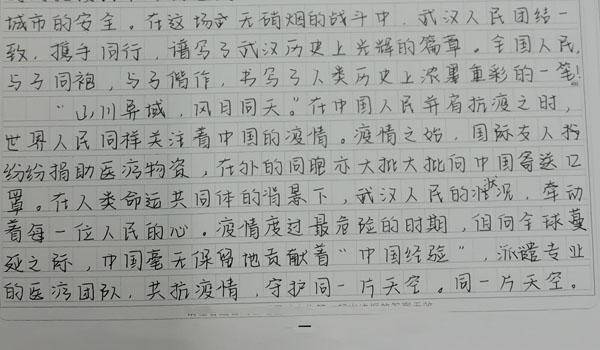 城市的安全。在这场无硝烟的战斗中，武汉人民团结一
致，携手同行，谱写了武汉历史上光辉的篇章。全国人民，
与子同袍，与子偕作，书写了人类历史上浓墨重彩的一笔！
“山川异域，风月同天。”在中国人民并肩抗疫之时，
世界人民同样关注着中国的疫情。疫情之始，国际友人
纷纷捐助医疗物资，在外的同胞亦大批大批向中国寄送口
罩。在人类命运共同体的背景下，武汉人民的状况，牵动
着每一位人民的心。疫情度过最危险的时期，但向全球蔓
延之际，中国毫无保留地贡献着“中国经验”，派遣专业
的医疗团队，共抗疫情，守护同一片天空。同一片天空。